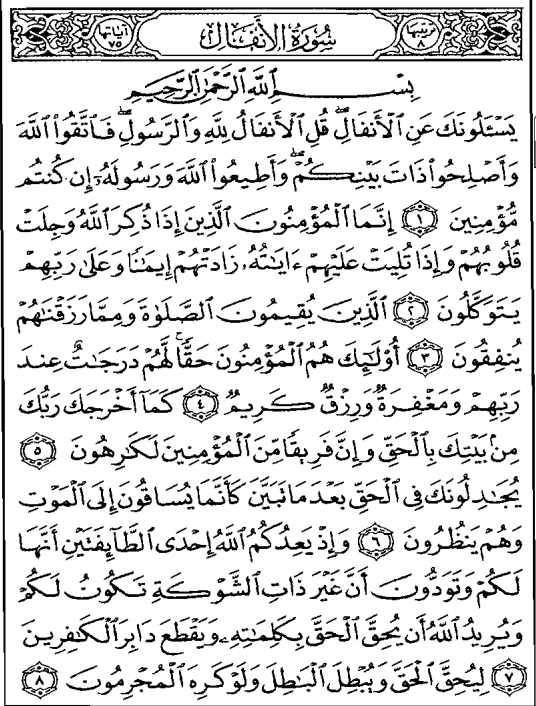 ترتيبها ٨ سُورَةُ الأَنفَالِ آياتها ٧٥
بِسْمِ ٱللَّهِ ٱلرَّحْمَٰنِ ٱلرَّحِيمِ
يَسْـَٔلُونَكَ عَنِ ٱلْأَنفَالِۖ قُلِ ٱلْأَنفَالُ لِلَّهِ وَٱلرَّسُولِۖ فَٱتَّقُوا۟ ٱللَّهَ
وَأَصْلِحُوا۟ ذَاتَ بَيْنِكُمْۖ وَأَطِيعُوا۟ ٱللَّهَ وَرَسُولَهُۥٓ إِن كُنتُم
مُّؤْمِنِينَ ﴿١﴾ إِنَّمَا ٱلْمُؤْمِنُونَ ٱلَّذِينَ إِذَا ذُكِرَ ٱللَّهُ وَجِلَتْ
قُلُوبُهُمْ وَإِذَا تُلِيَتْ عَلَيْهِمْ ءَايَٰتُهُۥ زَادَتْهُمْ إِيمَٰنًا وَعَلَىٰ رَبِّهِمْ
يَتَوَكَّلُونَ ﴿٢﴾ ٱلَّذِينَ يُقِيمُونَ ٱلصَّلَوٰةَ وَمِمَّا رَزَقْنَٰهُمْ
يُنفِقُونَ ﴿٣﴾ أُو۟لَٰٓئِكَ هُمُ ٱلْمُؤْمِنُونَ حَقًّاۚ لَّهُمْ دَرَجَٰتٌ عِندَ
رَبِّهِمْ وَمَغْفِرَةٌ وَرِزْقٌ كَرِيمٌ ﴿٤﴾ كَمَآ أَخْرَجَكَ رَبُّكَ
مِنۢ بَيْتِكَ بِٱلْحَقِّ وَإِنَّ فَرِيقًا مِّنَ ٱلْمُؤْمِنِينَ لَكَٰرِهُونَ ﴿٥﴾
يُجَٰدِلُونَكَ فِى ٱلْحَقِّ بَعْدَ مَا تَبَيَّنَ كَأَنَّمَا يُسَاقُونَ إِلَى ٱلْمَوْتِ
وَهُمْ يَنظُرُونَ ﴿٦﴾ وَإِذْ يَعِدُكُمُ ٱللَّهُ إِحْدَى ٱلطَّآئِفَتَيْنِ أَنَّهَا
لَكُمْ وَتَوَدُّونَ أَنَّ غَيْرَ ذَاتِ ٱلشَّوْكَةِ تَكُونُ لَكُمْ
وَيُرِيدُ ٱللَّهُ أَن يُحِقَّ ٱلْحَقَّ بِكَلِمَٰتِهِۦ وَيَقْطَعَ دَابِرَ ٱلْكَٰفِرِينَ
﴿٧﴾ لِيُحِقَّ ٱلْحَقَّ وَيُبْطِلَ ٱلْبَٰطِلَ وَلَوْ كَرِهَ ٱلْمُجْرِمُونَ ﴿٨﴾